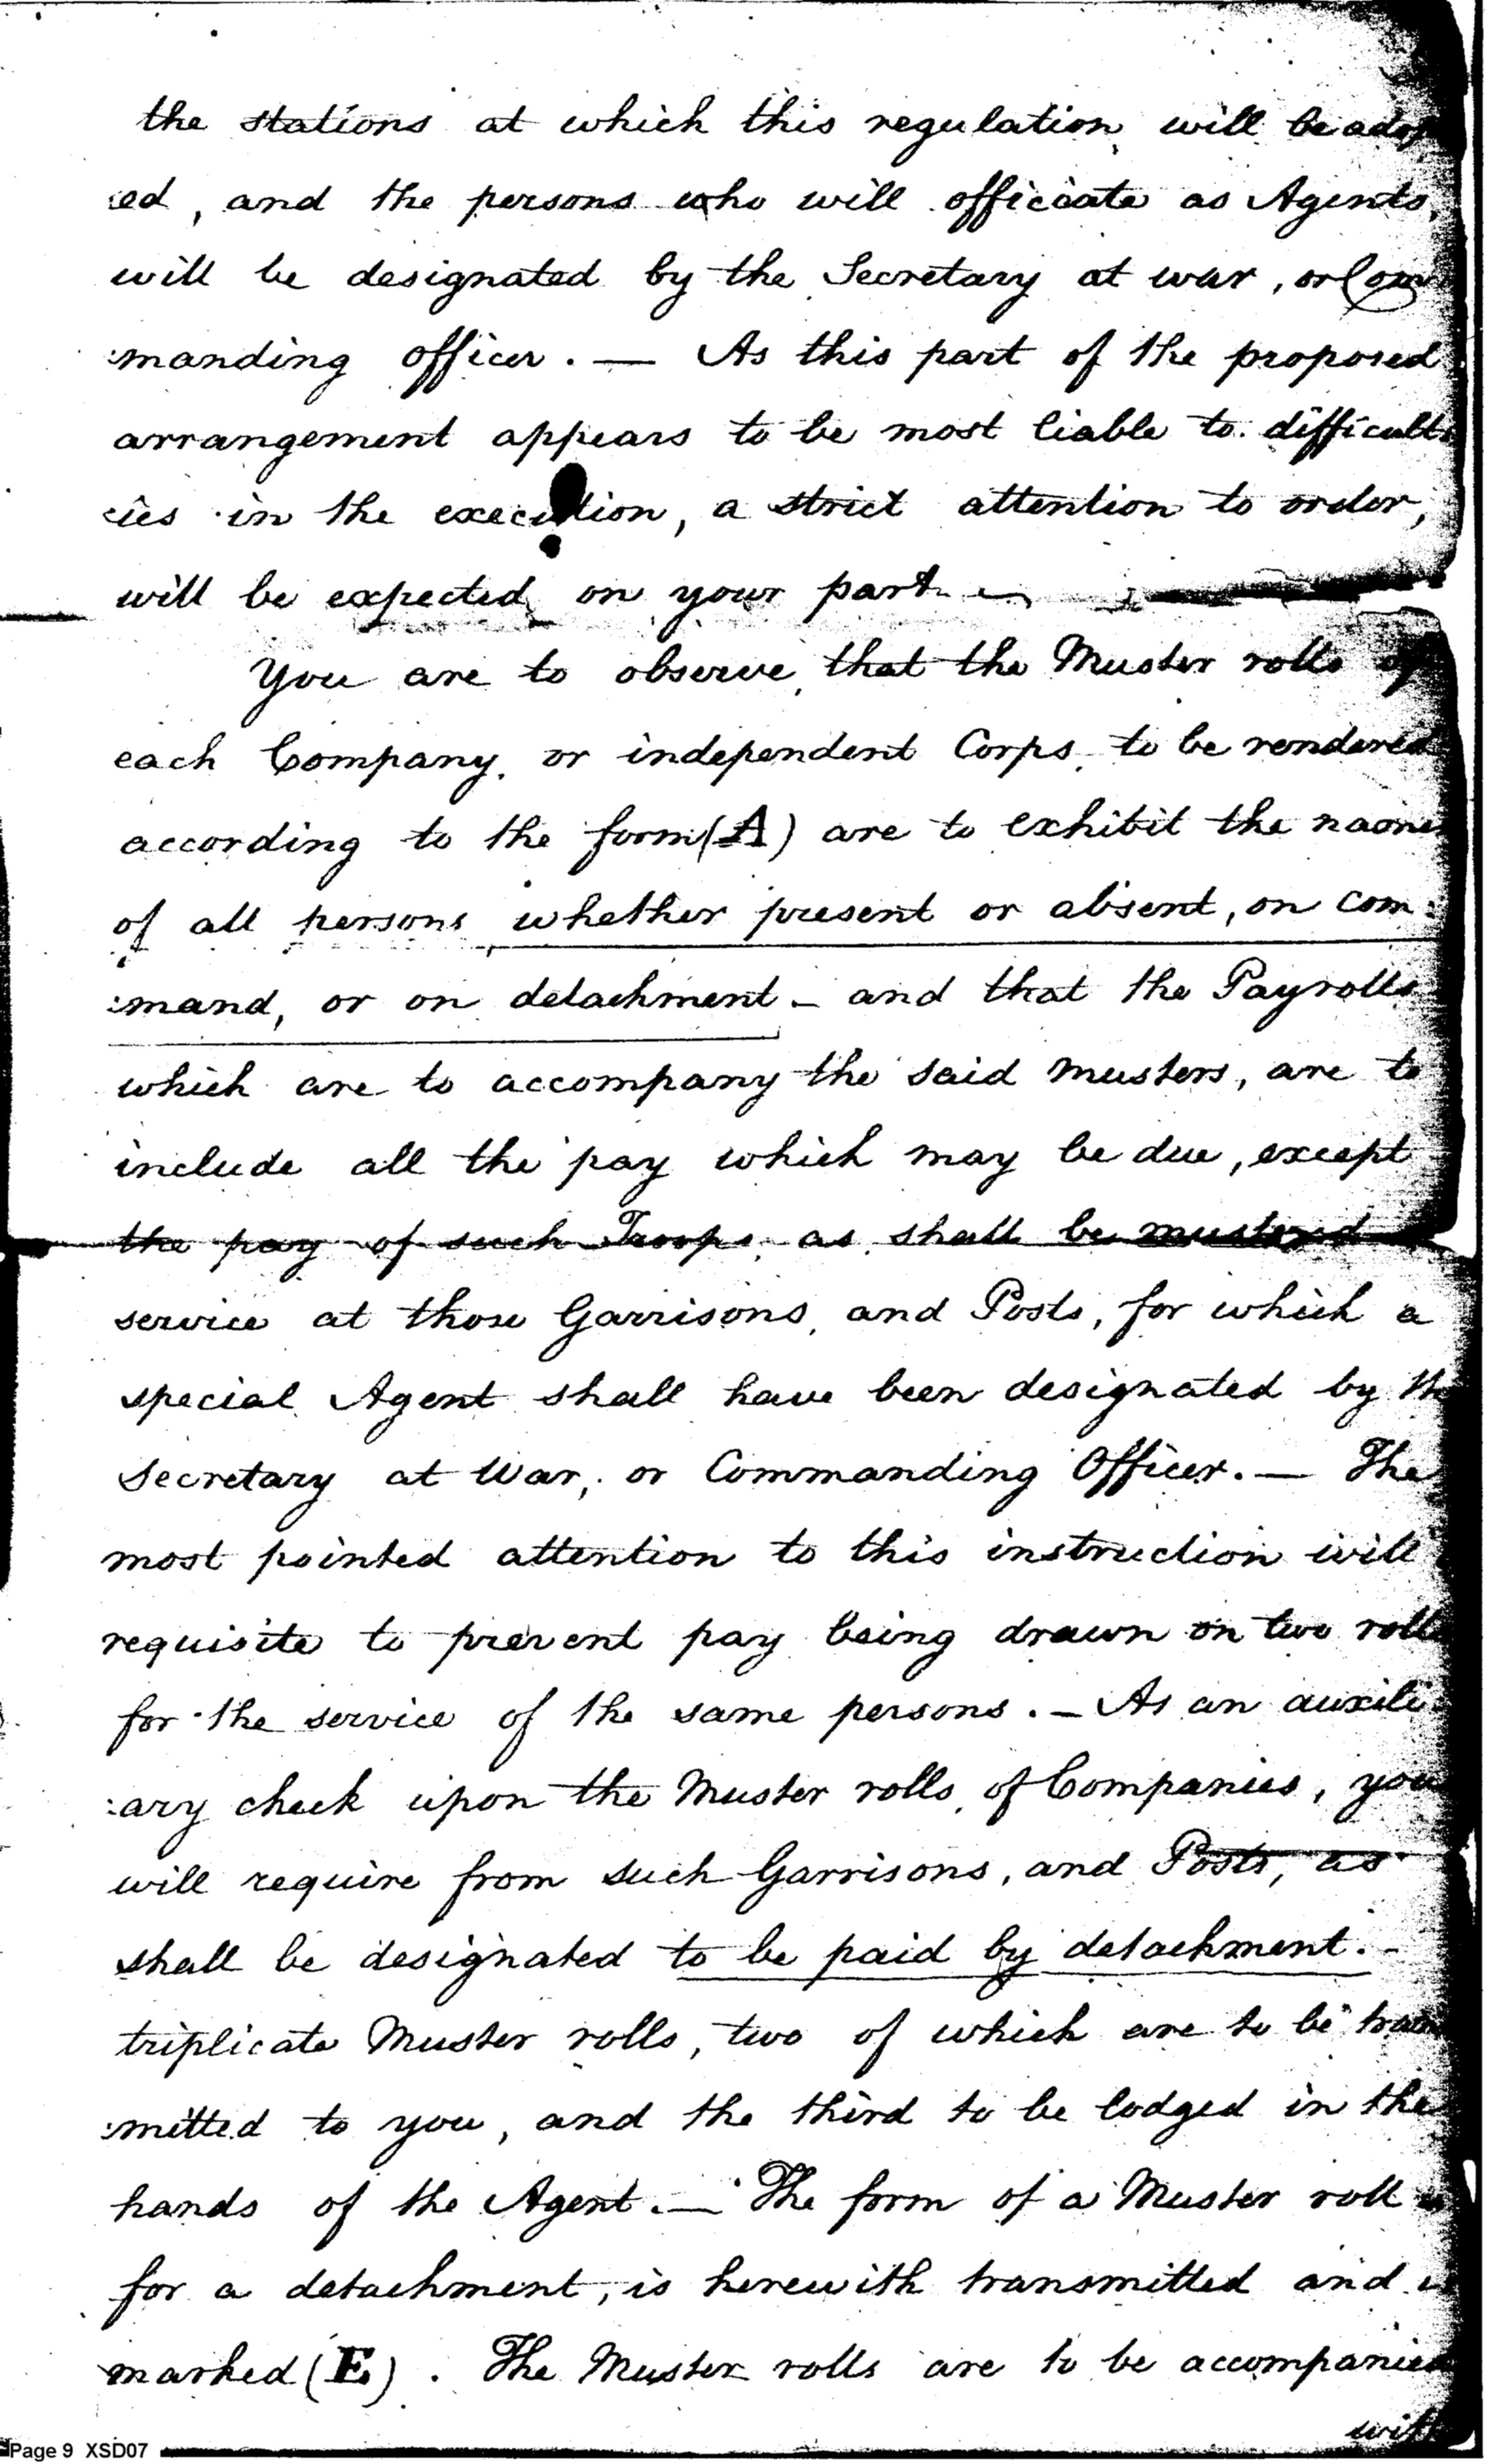 the stations at which this regulation, will be adop
:ed, and the persons who will officiate as Agents,
will be designated by the Secretary at war, or Com
:manding officer. — As this part of the proposed
arrangement appears to be most liable to difficult
:ies in the execution, a strict attention to order,
will be expected, on your part
You are to observe, that the Muster rolls of
each Company, or independent Corps, to be rendered
according to the form (A) are to exhibit the names
of all persons, whether present or absent, on com:
:mand, or on detachment — and that the Payrolls
which are to accompany the said musters, are to
include all the pay which may be due, except
the pay of such Troops, as shall be mustered
service at those Garrisons, and Posts, for which a
special Agent shall have been designated by the
Secretary at War, or Commanding Officer. — The
most pointed attention to this instruction will
requisite to prevent pay being drawn on two rolls
for the service of the same persons. — As an auxili
:ary check upon the Muster rolls, of Companies, you
will require from such Garrisons, and Posts, as
shall be designated to be paid by detachment. -
triplicate Muster rolls, two of which are to be trans
:mitted to you, and the third to be lodged in the
hands of the Agent. — The form of a Muster roll
for a detachment, is herewith transmitted and
marked (E). The Muster rolls are to be accompanied
with
Page 9 XSD07